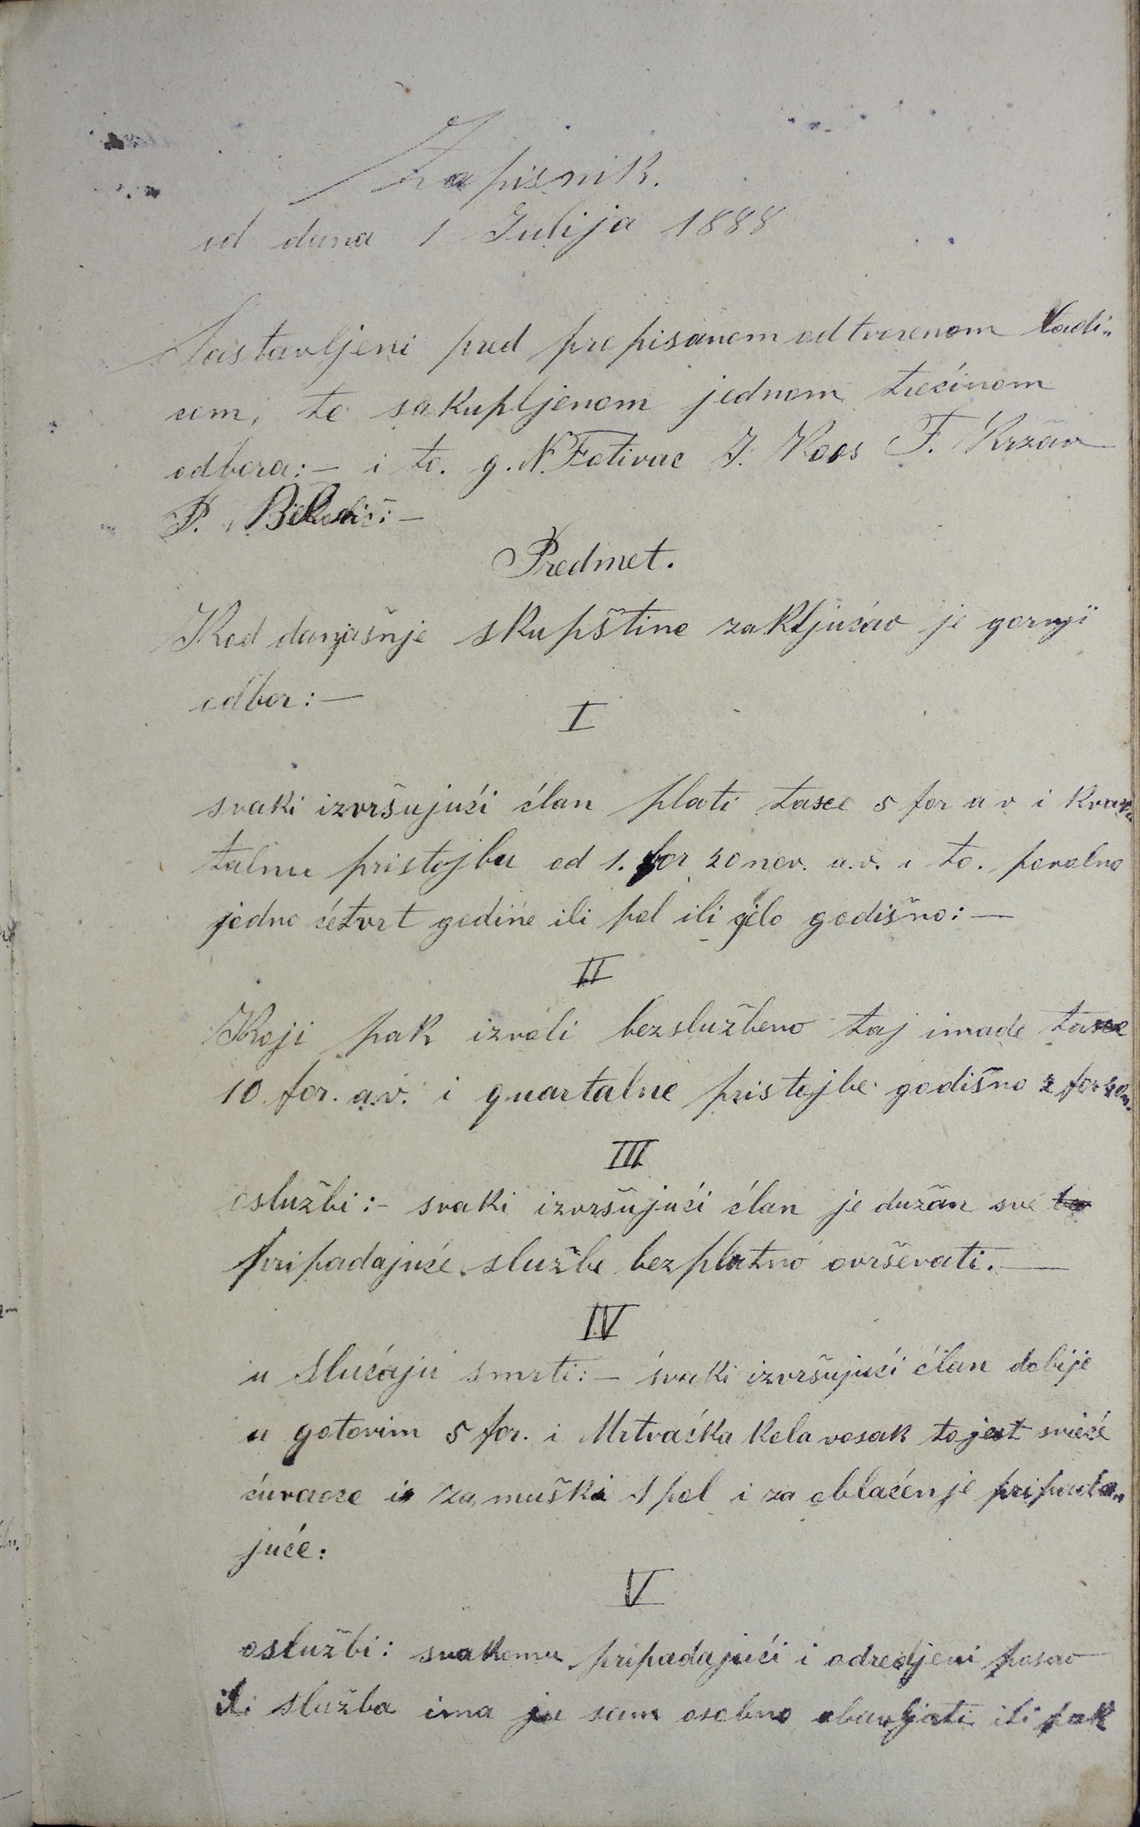 Zapisnik.
od dana 1 Julija 1888
Sastavljeni pred prepisanom odtvorenom ladi„
com, te sakupljenom jednom trećinom
odbora:— i to. g. N. Fotivac J. Koos F. Kržan
P.
Predmet.
Kod danjašnje skupštine zakključao je gornji
odbor:—
I
svaki izvršujući član plati taxe 5 for a v i kvar„
talnu pristojbu od 1. for 20 nov. a.v. i to. povolno
jedno četvrt godine ili pol ili cjelo godišno:—
II
Koji pak izvoli bezslužbeno taj imade taxe
10 for. a.v. i quartalne pristojbe godišno 2 for
III
oslužbi:- svaki izvršujući član je dužan sve
pripadajuće službe bezplatno ovrševati.—
IV
u slučaju smrti:— svaki izvršujući član dobije
u gotovim 5 for. i Mrtvačka kola vosak to jest svieće
čuvaoze is za muški spol i za oblačenje pripada„
juće:
V
oslužbi: svakomu pripadajući i odredjeni posao
ili služba ima ju sam osobno obavljati ili pak